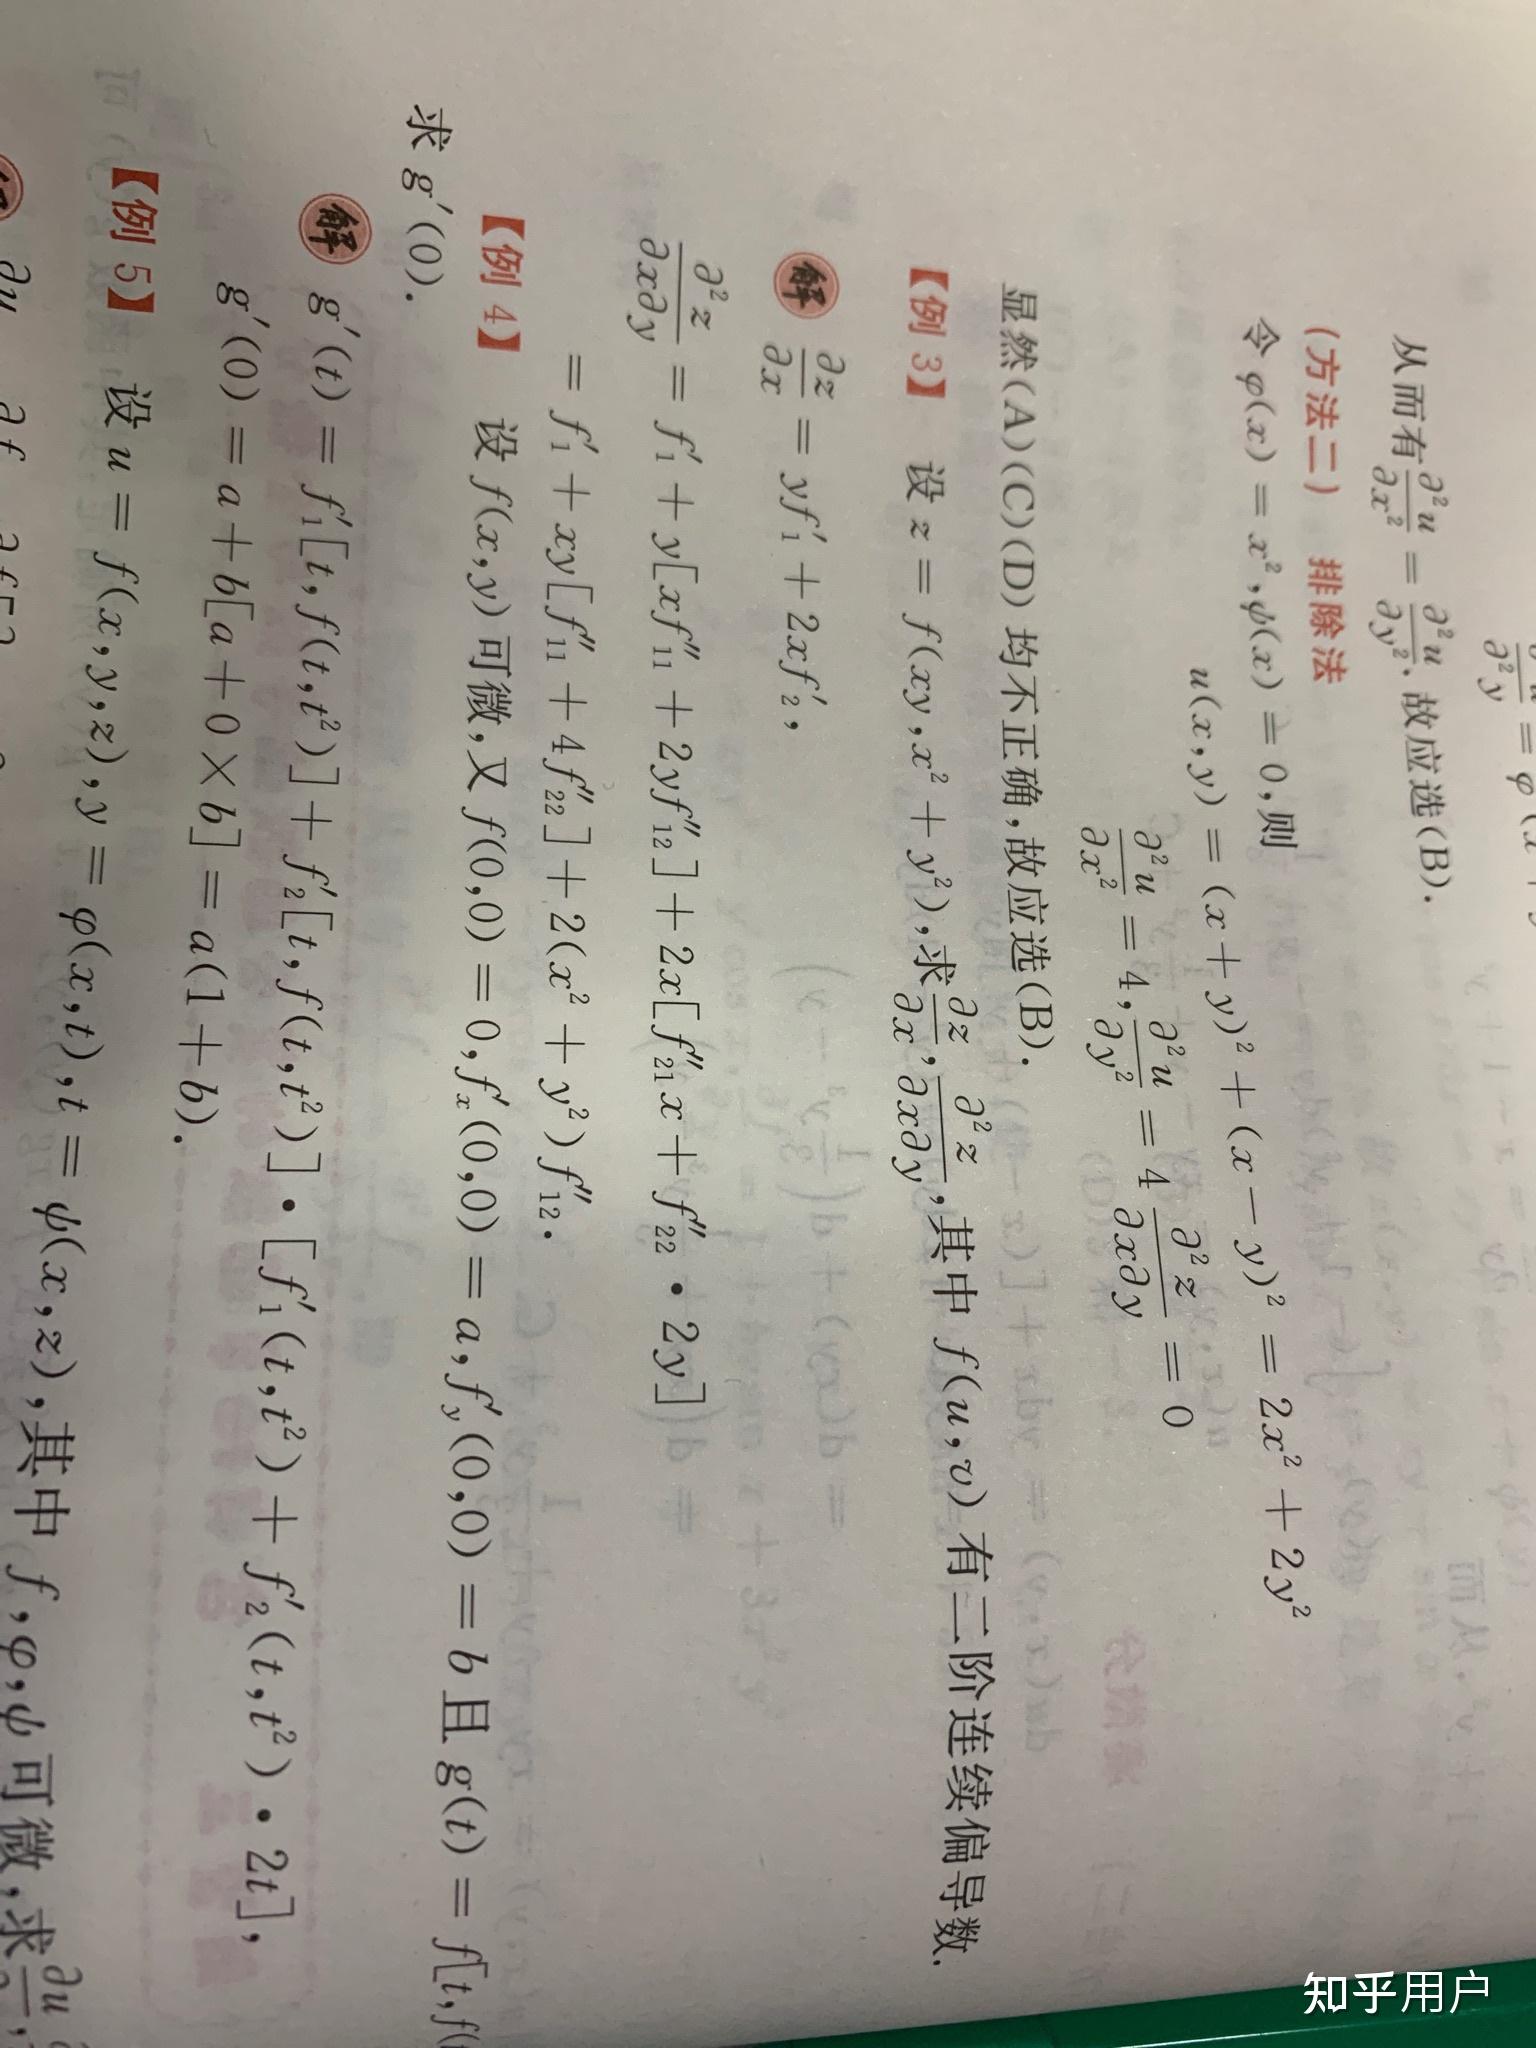 ∂²y = φ
从而有 ∂²u/∂x² = ∂²u/∂y². 故应选(B).
(方法二) 排除法
令 φ(x) = x², ψ(x) = 0, 则
u(x, y) = (x + y)² + (x − y)² = 2x² + 2y²
∂²u/∂x² = 4, ∂²u/∂y² = 4 ∂²z/∂x∂y = 0
显然(A)(C)(D) 均不正确, 故应选(B).
【例 3】 设 z = f(xy, x² + y²), 求 ∂z/∂x, ∂²z/∂x∂y, 其中 f(u, v) 有二阶连续偏导数.
解 ∂z/∂x = yf′₁ + 2xf′₂,
∂²z/∂x∂y = f′₁ + y[xf″₁₁ + 2yf″₁₂] + 2x[f″₂₁x + f″₂₂ • 2y]
= f′₁ + xy[f″₁₁ + 4f″₂₂] + 2(x² + y²)f″₁₂.
【例 4】 设 f(x, y) 可微, 又 f(0,0) = 0, f′ₓ(0,0) = a, f′y(0,0) = b 且 g(t) = f[t, f(
求 g′(0).
解 g′(t) = f′₁[t, f(t, t²)] + f′₂[t, f(t, t²)] • [f′₁(t, t²) + f′₂(t, t²) • 2t],
g′(0) = a + b[a + 0 × b] = a(1 + b).
【例 5】 设 u = f(x, y, z), y = φ(x, t), t = ψ(x, z), 其中 f, φ, ψ 可微, 求 ∂u
∂u ∂f
知乎用户